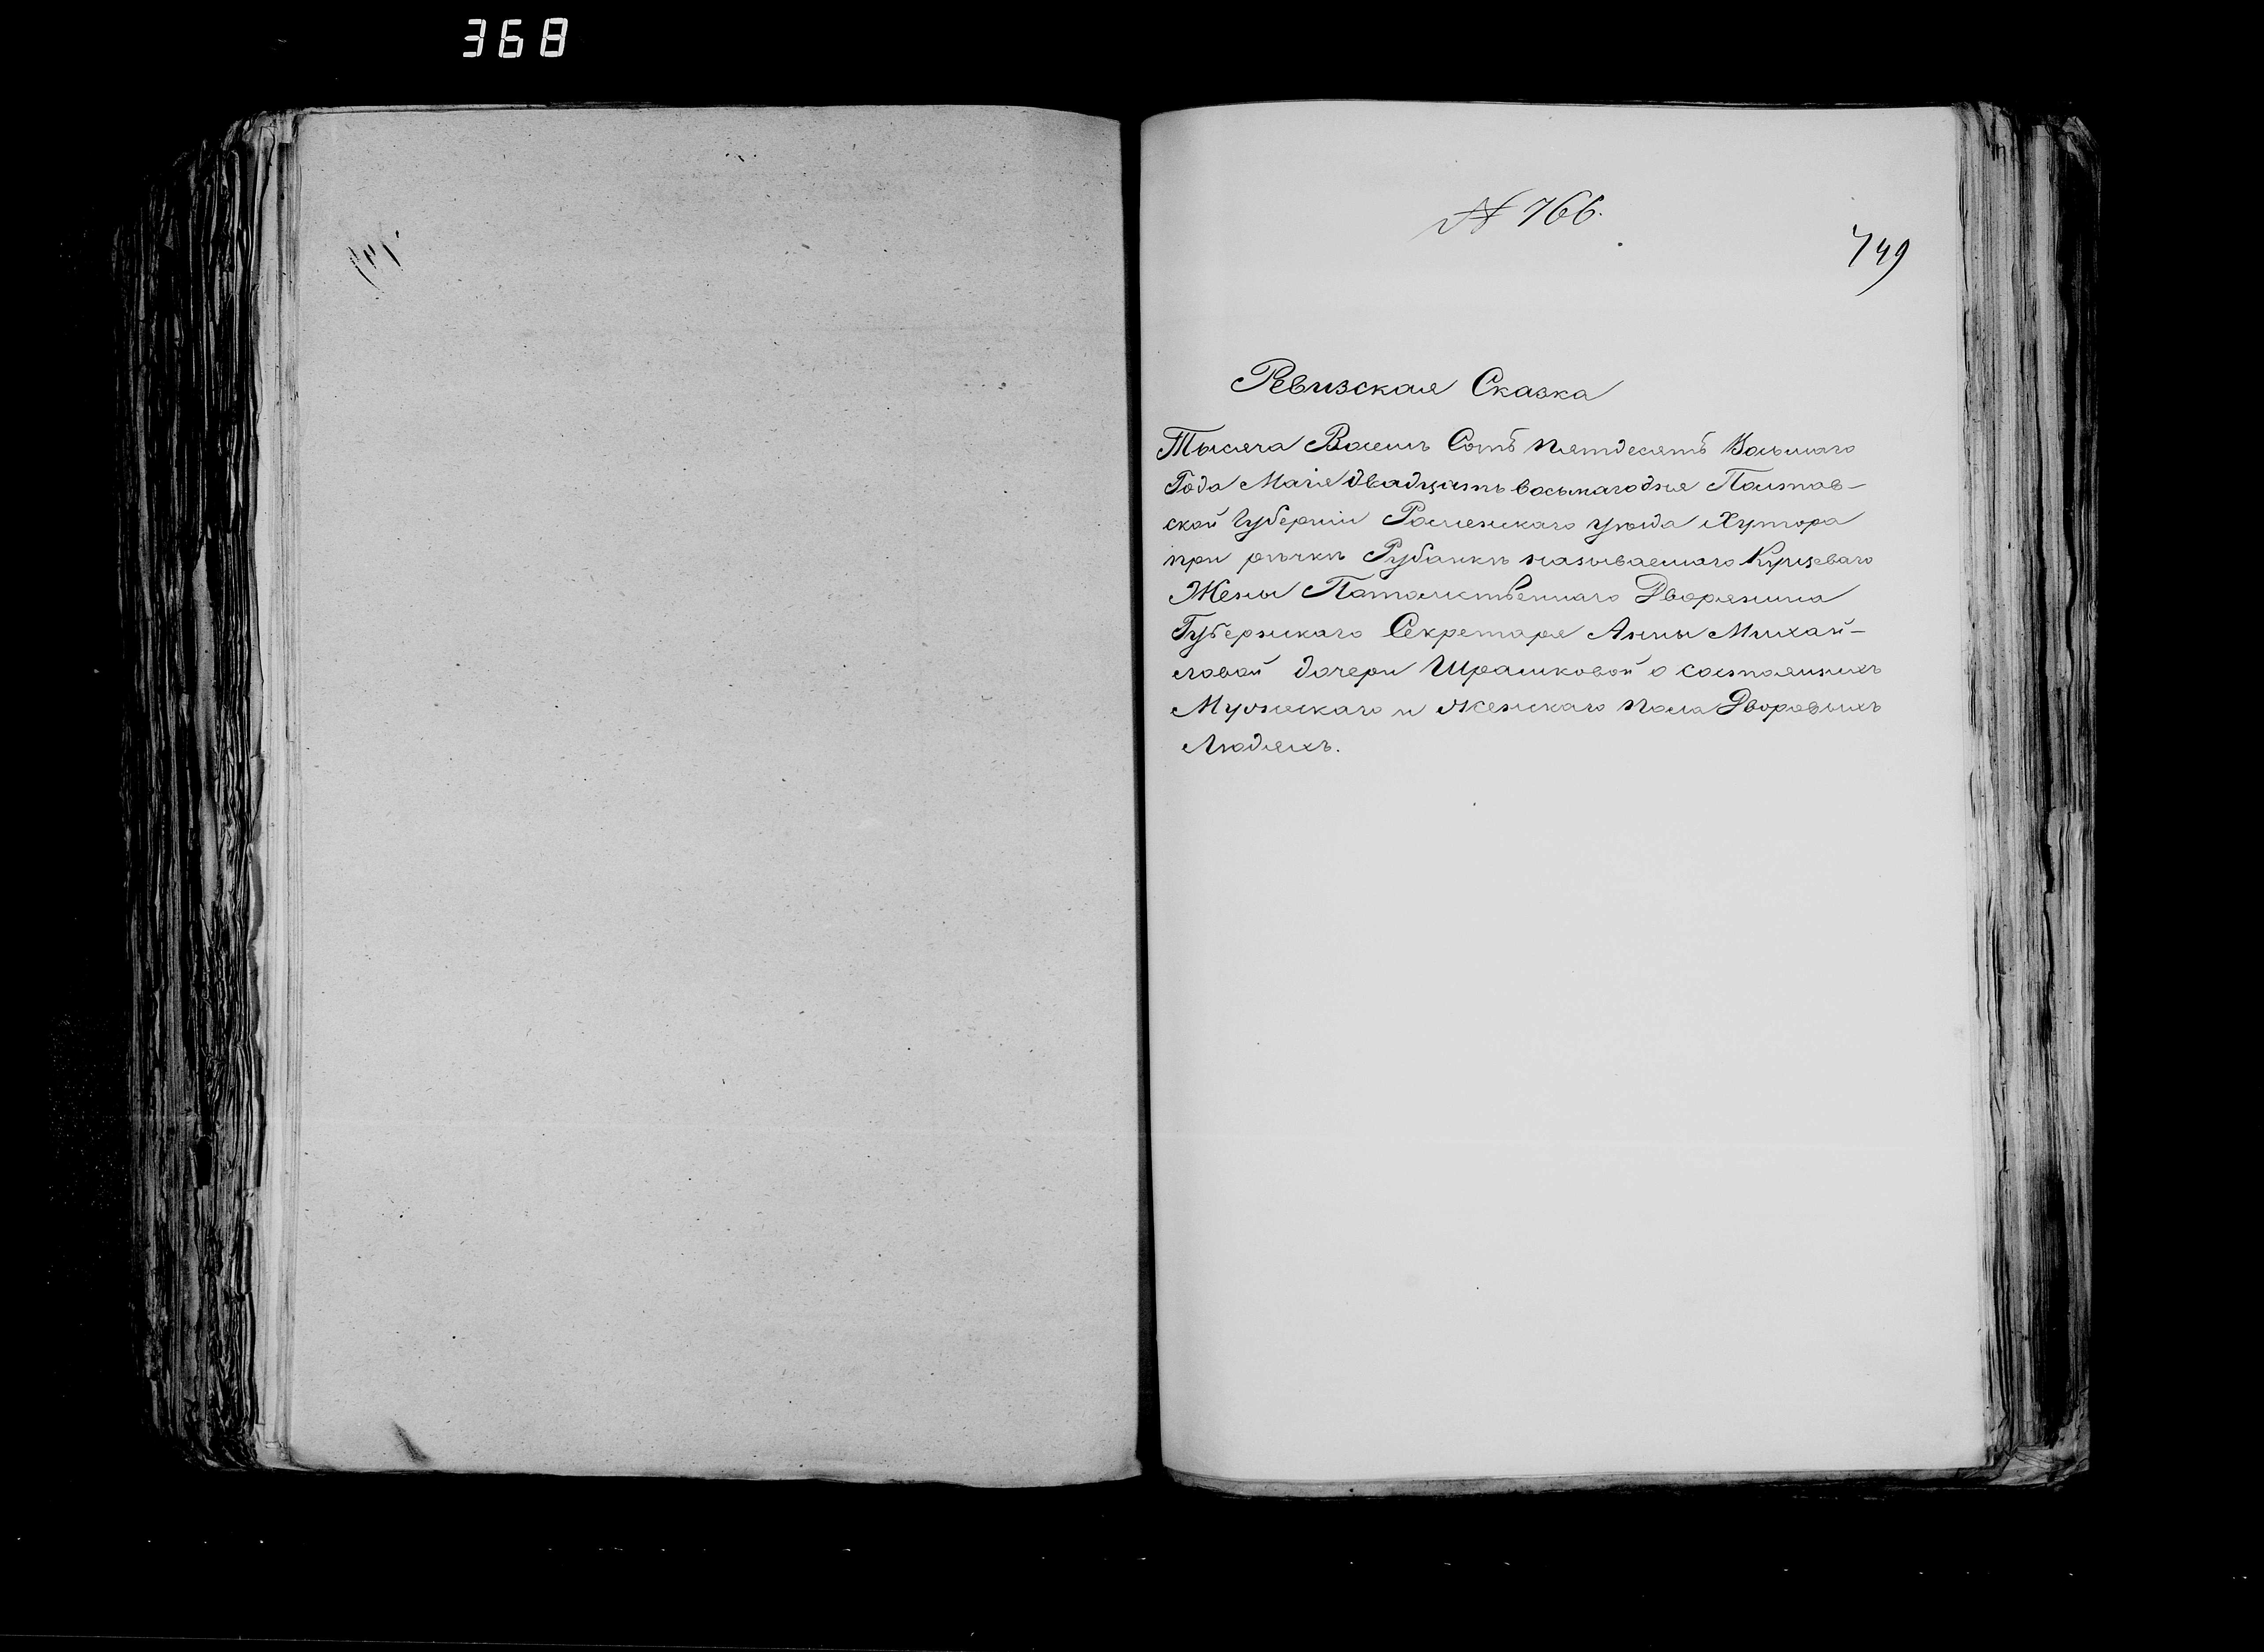 368
№ 766.
749
Ревизская Сказка
Тысяча Восемь Сотъ пятдесятъ Восьмаго
Года Маія двадцать восьмаго дня Полтав-
ской Губерніи Роменскаго уезда Хутора
при речкѣ Рубанкѣ называемаго
Жены Потомственнаго Дворянина
Губернскаго Секретаря Анны Михай-
ловой дочери Шрамковой о состоящихъ
Мужескаго и Женскаго пола Дворовыхъ
Людяхъ.